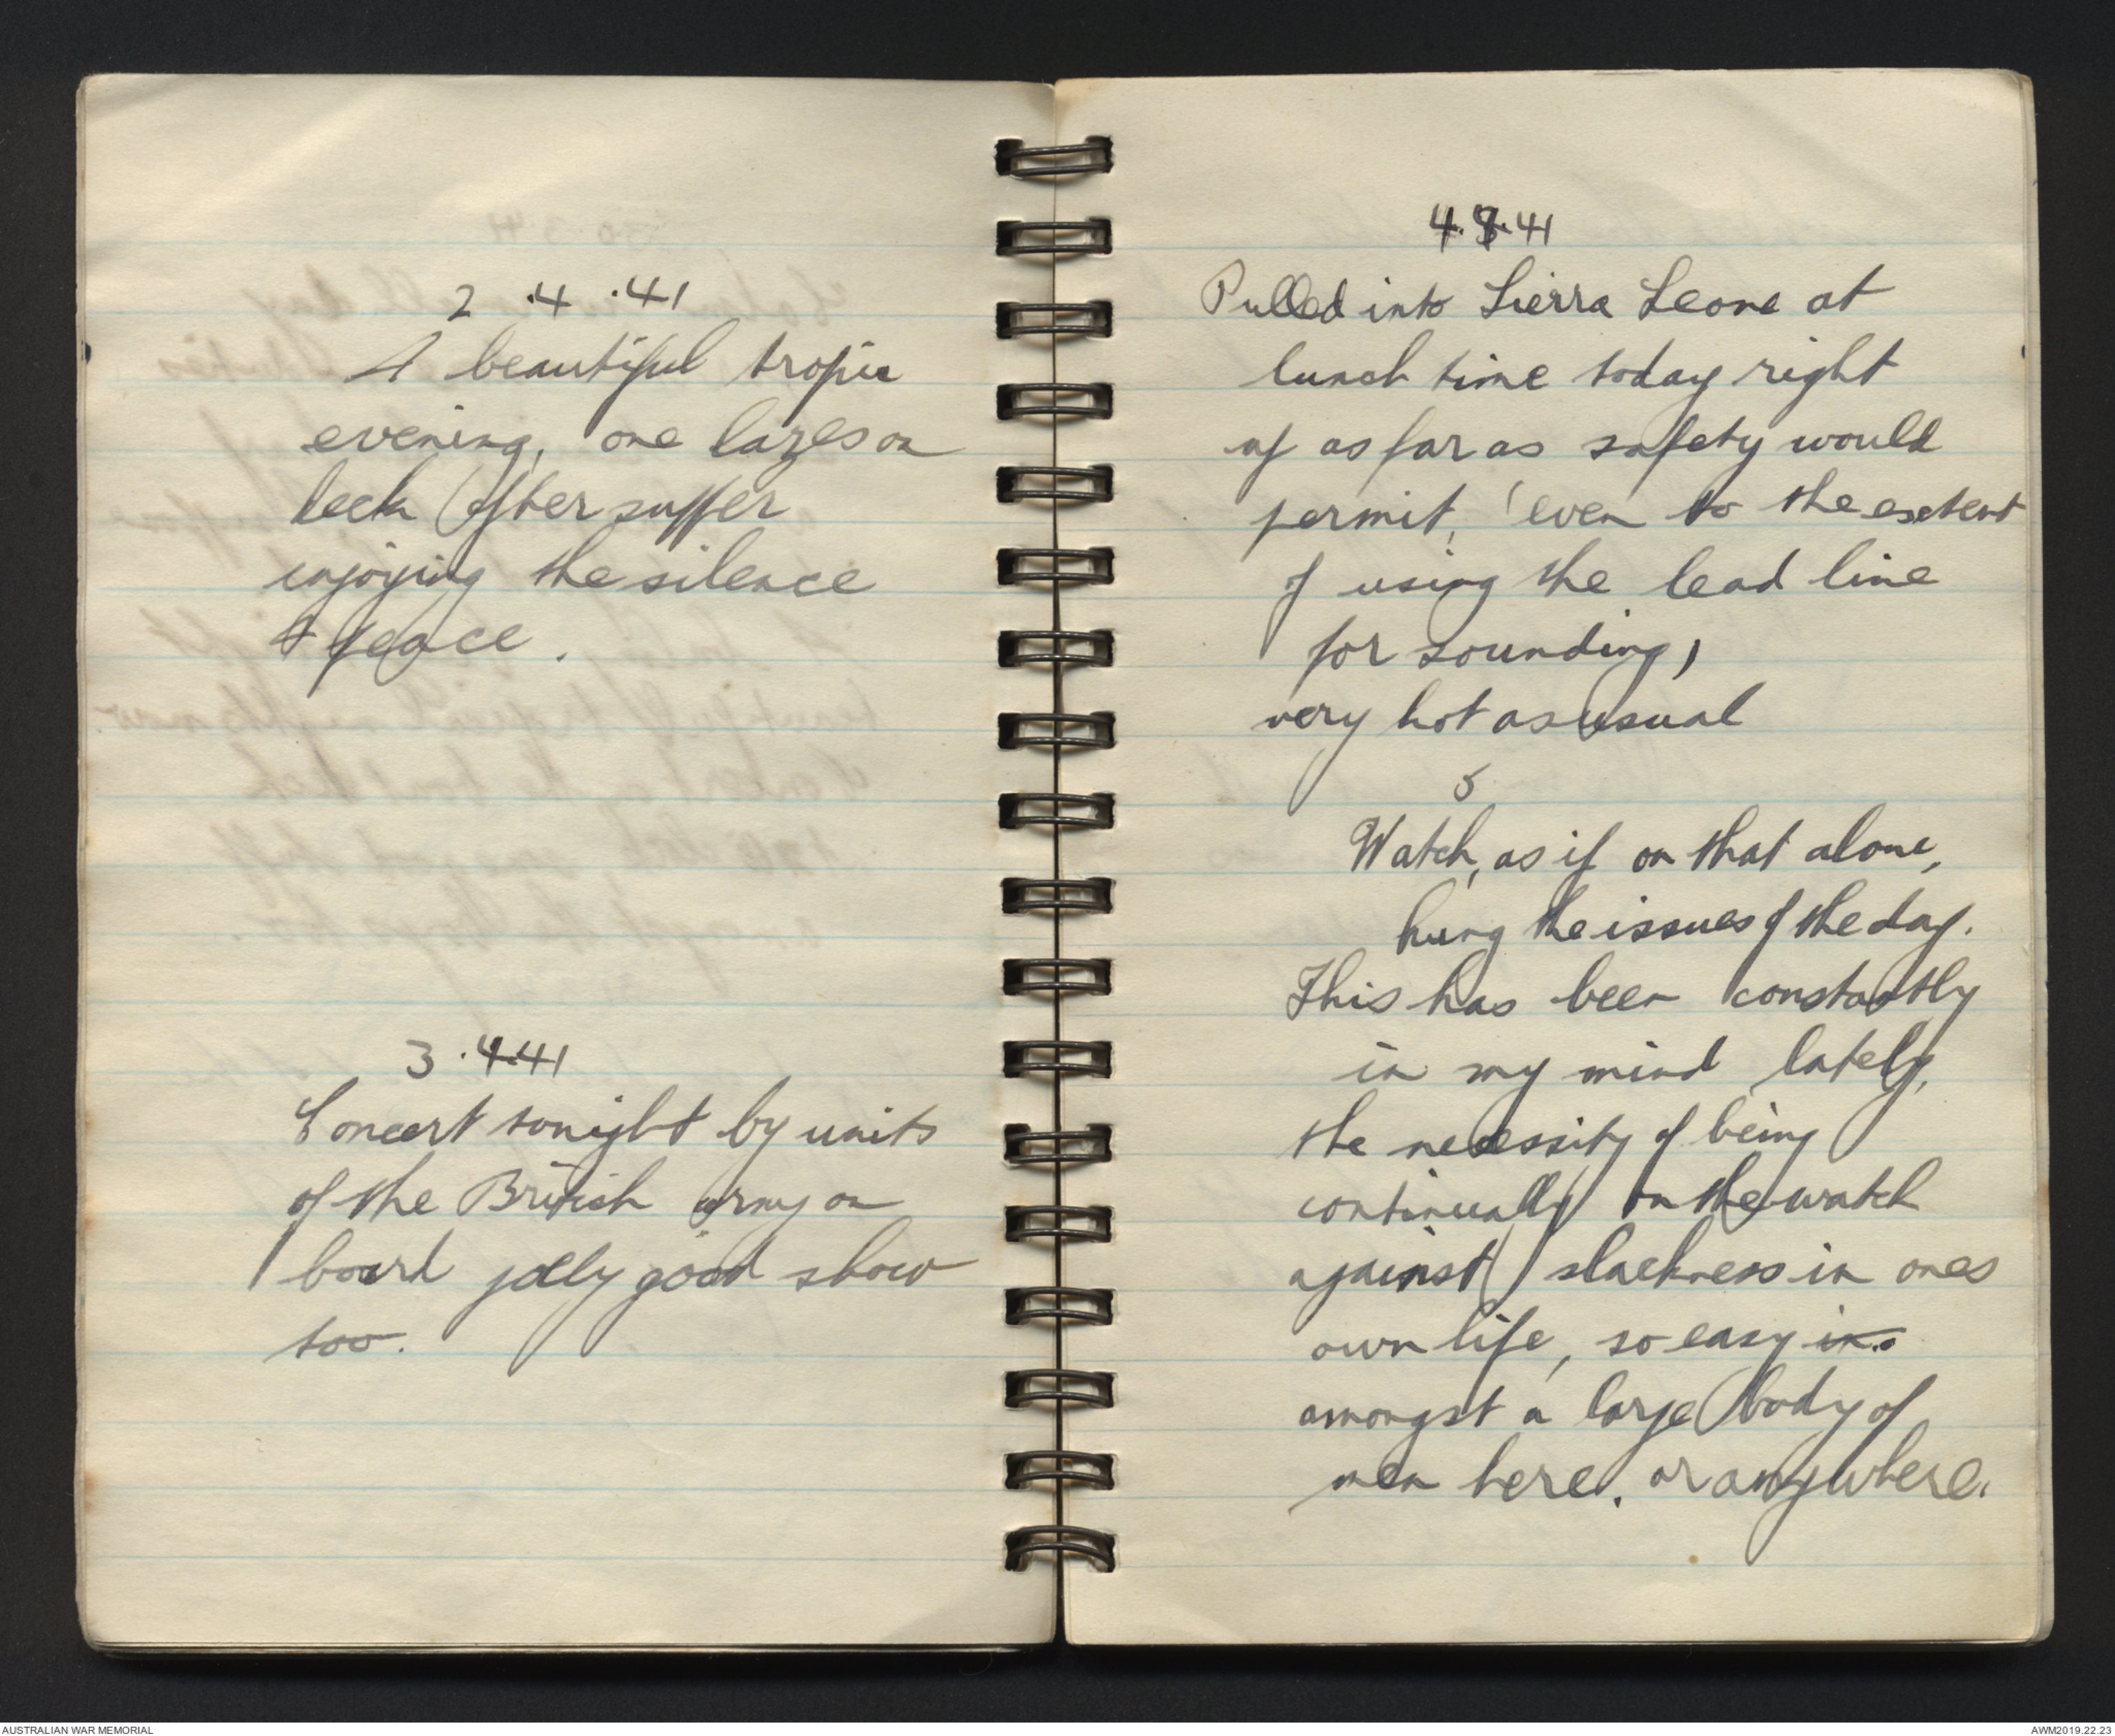 2 .4 .41
A beautiful tropic
evening, one lazes on
deck after supper
enjoying the silence
& peace.
3 .4.41
Concert tonight by units
of the British army on
board jolly good show
too.
4.4.41
Pulled into Sierra Leone at
lunch time today right
up as far as safety would
permit, even to the extent
of using the lead line
for sounding,
very hot as usual
5
Watch, as if on that alone,
hung the issues of the day.
This has been constantly
in my mind lately,
the necessity of being
continually on the watch
against slackness in ones
own life, so easy in
amongst a large body of
men here. or anywhere.
AUSTRALIAN WAR MEMORIAL
AWM2019.22.23